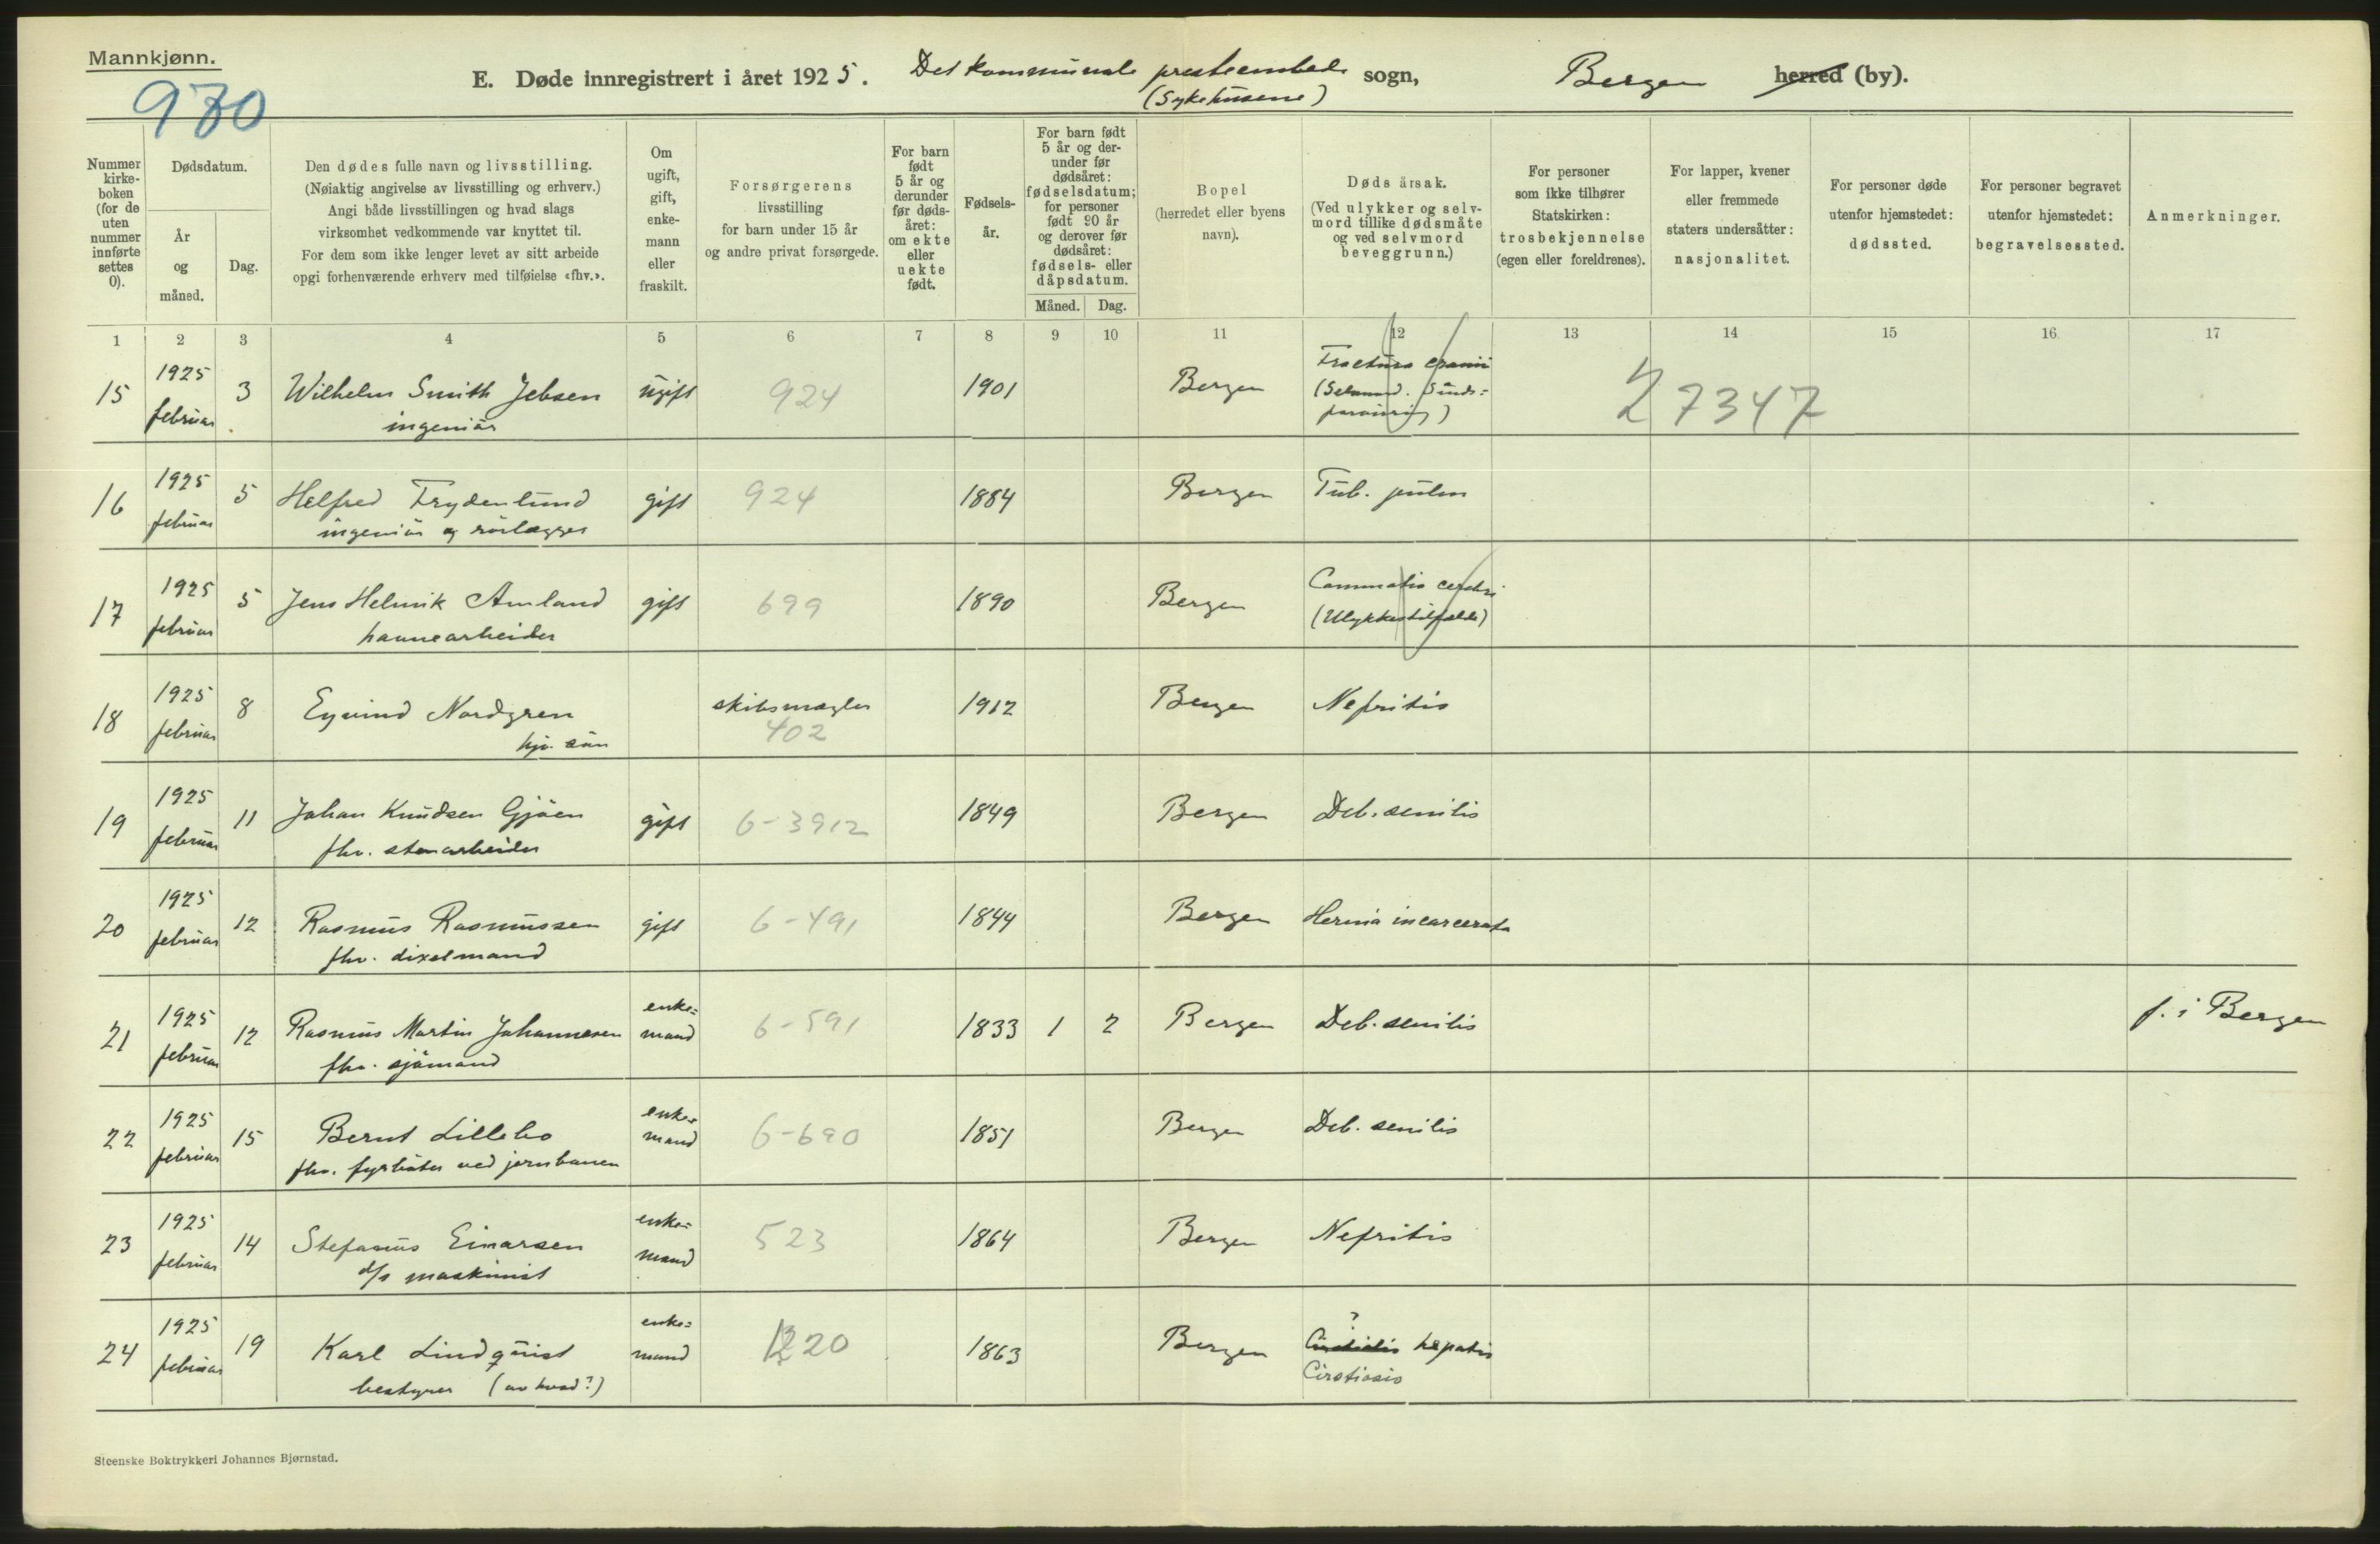 Mannkjønn.
970
E. Døde innregistrert i året 1925. Det kommunale presteembede sogn, Bergen herred (by).
(Sykehusene)
Nummer kirkeboken (for de uten nummer innførte settes 0).
Dødsdatum.
År og måned.
Dag.
Den dødes fulle navn og livsstilling.
(Nøiaktig angivelse av livsstilling og erhverv.)
Angi både livsstillingen og hvad slags
virksomhet vedkommende var knyttet til.
For dem som ikke lenger levet av sitt arbeide
opgi forhenværende erhverv med tilføielse «fhv.».
Om ugift, gift, enkemann eller fraskilt.
Forsørgerens
livsstilling
for barn under 15 år
og andre privat forsørgede.
For barn født 5 år og derunder før dødsåret: om ekte eller uekte født.
Fødselsår.
For barn født 5 år og derunder før dødsåret: fødselsdatum; for personer født 90 år og derover før dødsåret: fødsels- eller dåpsdatum.
Måned. Dag.
Bopel
(herredet eller byens
navn).
Dødsårsak.
(Ved ulykker og selvmord tillike dødsmåte og ved selvmord beveggrunn.)
For personer
som ikke tilhører
Statskirken:
trosbekjennelse
(egen eller foreldrenes).
For lapper, kvener
eller fremmede
staters undersåtter:
nasjonalitet.
For personer døde
utenfor hjemstedet:
dødssted.
For personer begravet
utenfor hjemstedet:
begravelsessted.
Anmerkninger.
1 2 3 4 5 6 7 8 9 10 11 12 13 14 15 16 17
15 1925 februar 3 Wilhelm Smith Jebsen ugift 924 1901 Bergen Fractura cranii
ingeniör (Selvmord. Sinds= 27347
16 1925 februar 5 Helfred Frydenlund gift 924 1884 Bergen Tub. pulm
ingeniör og rörlægger
17 1925 februar 5 Jens Helmik Amland gift 699 1890 Bergen Commotio cerebri
havnearbeider (Ulykkestilfælde)
18 1925 februar 8 Eyvind Nordgren skibsmægler 1912 Bergen Nefritis
hjv. sön 402
19 1925 februar 11 Johan Knudsen Gjöen gift 6-3912 1849 Bergen Deb. senilis
fhv. stenarbeider
20 1925 februar 12 Rasmus Rasmussen gift 6-491 1844 Bergen Hernia incarcerata
fhv. dixelmand
21 1925 februar 12 Rasmus Martin Johannesen enke=mand 6-591 1833 1 2 Bergen Deb. senilis f. i Bergen
fhv. sjömand
22 1925 februar 15 Bernt Lillebo enke=mand 6-690 1851 Bergen Deb. senilis
fhv. fyrböter ved jernbanen
23 1925 februar 14 Stefanus Einarsen enke=mand 523 1864 Bergen Nefritis
d/s maskinist
24 1925 februar 19 Karl Lindquist enke=mand 20 1863 Bergen ? hepatis
bestyrer (av hvad?) Cirotiosis
Steenske Boktrykkeri Johannes Bjørnstad.